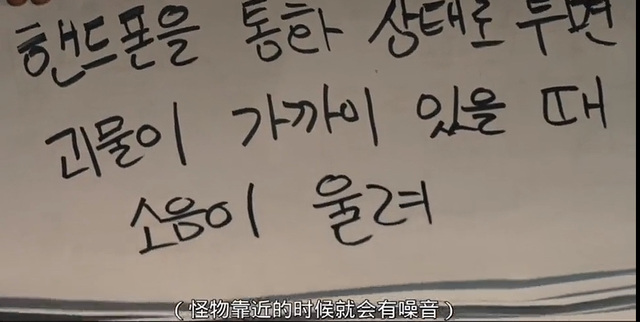 핸드폰을 통화 상태로 두면
괴물이 가까이 있을 때
소음이 울려
(怪物靠近的时候就会有噪音)